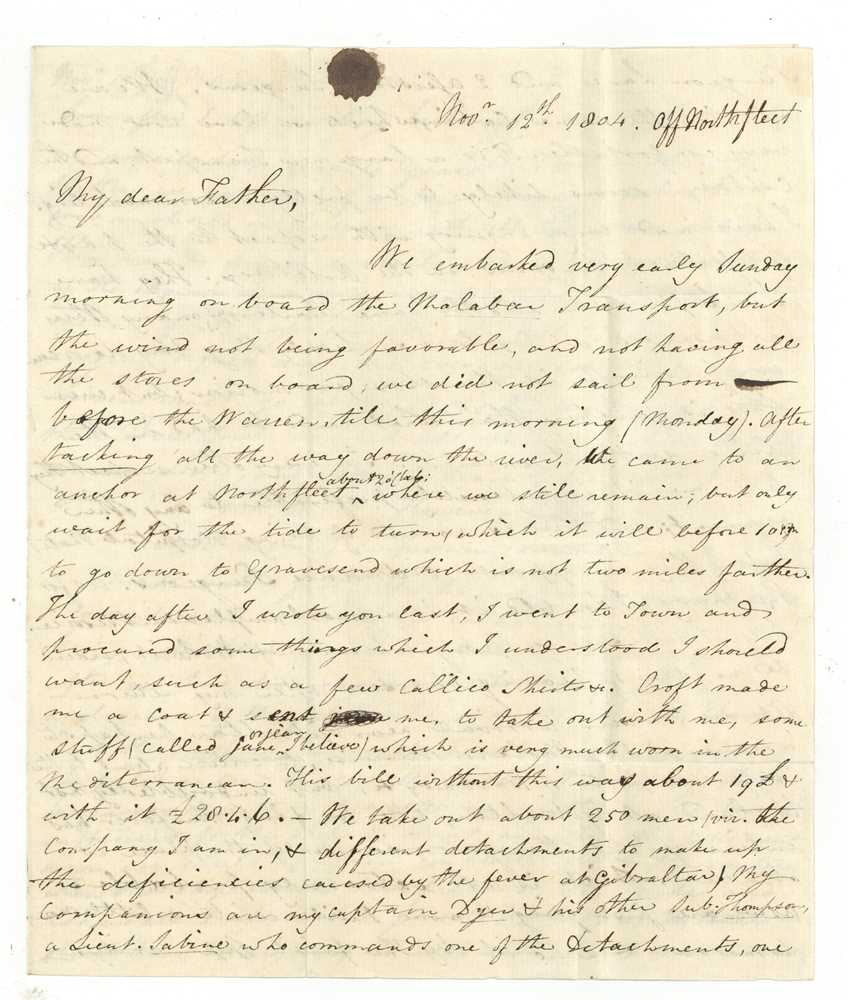 Novr. 12th. 1804. Off Northfleet
My dear Father,
We embarked very early Sunday
morning on board the Malabar Transport, but
the wind not being favorable, and not having all
the stores on board, we did not sail from
before the Warren, till this morning (Monday). After
tacking all the way down the river, We came to an
anchor at Northfleet about 2 o'Clock; where we still remain; but only
wait for the tide to turn, which it will before 10
to go down to Gravesend which is not two miles farther.
The day after I wrote you last, I went to Town and
procured some things which I understood I should
want, such as a few Callico Shirts &c. Croft made
me a coat & sent me, to take out with me, some
stuff (called jane or jean, I believe) which is very much worn in the
Mediterranean. His bill without this was about 19£ &
with it £28.4.6. — We take out about 250 men (viz. the
Company I am in, & different detachments to make up
the deficiencies caused by the fever at Gibraltar). My
Companions are my Captain Dyer & his other Sub. Thompson,
a Lieut. Sabine who commands one of the Detachments, one